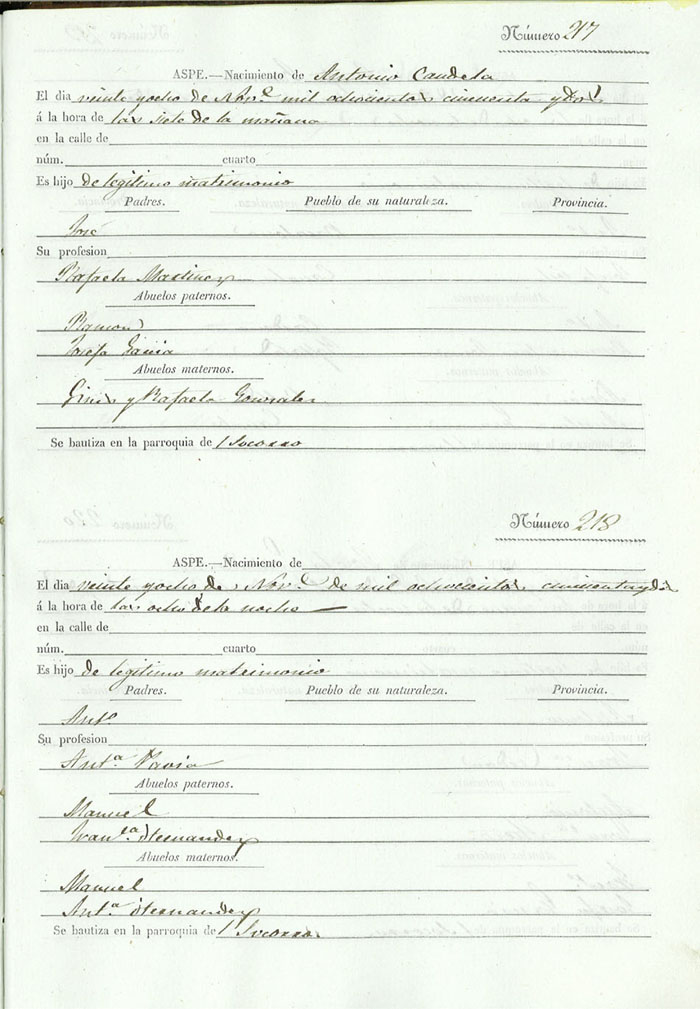 Número 217
ASPE.—Nacimiento de Antonio Candela
El dia veinte y ocho de Novᵉ mil ochocientos cincuenta y dos
á la hora de las siete de la mañana
en la calle de
núm. cuarto
Es hijo de legitimo matrimonio
Padres. Pueblo de su naturaleza. Provincia.
José
Su profesion
Rafaela Martinez
Abuelos paternos.
Ramon
Josefa Garcia
Abuelos maternos.
Gines y Rafaela Gonzales
Se bautiza en la parroquia de l Socorro
Número 218
ASPE.—Nacimiento de
El dia veinte y ocho de Novᵉ de mil ochocientos cincuenta y dos
á la hora de las ocho de la noche
en la calle de
núm. cuarto
Es hijo de legitimo matrimonio
Padres. Pueblo de su naturaleza. Provincia.
Antº
Su profesion
Antª Pavia
Abuelos paternos.
Manuel
Franᶜᵃ Hernandez
Abuelos maternos.
Manuel
Antª Hernandez
Se bautiza en la parroquia de l Socorro.